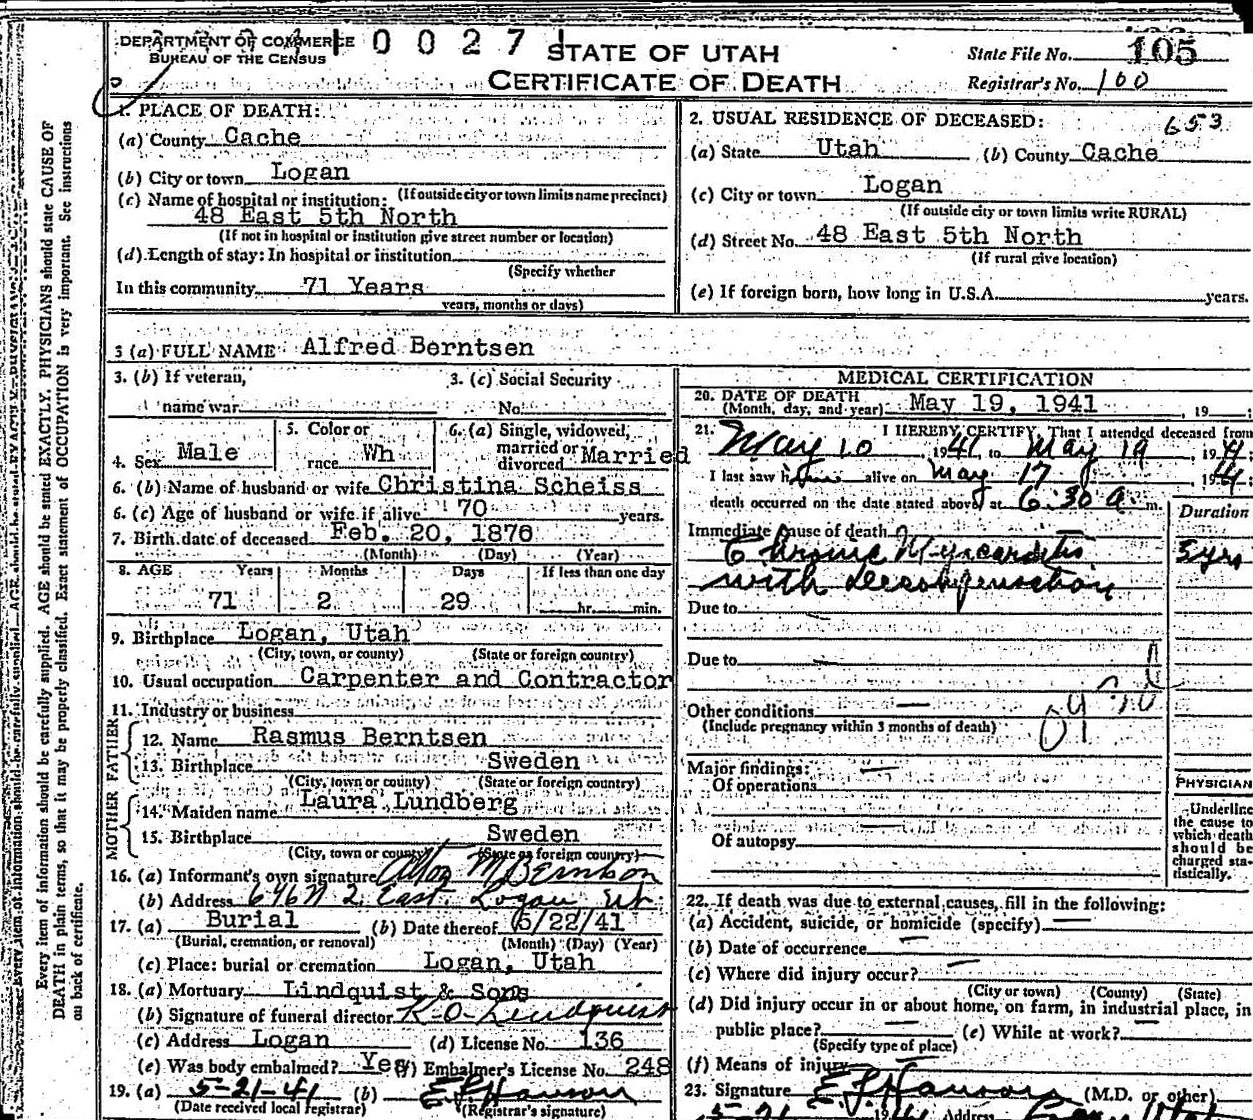 DEPARTMENT OF COMMERCE
BUREAU OF THE CENSUS
0027
STATE OF UTAH
CERTIFICATE OF DEATH
State File No. 105
Registrar's No. 100
1. PLACE OF DEATH:
(a) County Cache
(b) City or town Logan
(If outside city or town limits name precinct)
(c) Name of hospital or institution:
48 East 5th North
(If not in hospital or institution give street number or location)
(d) Length of stay: In hospital or institution
(Specify whether
In this community 71 Years
years, months or days)
2. USUAL RESIDENCE OF DECEASED: 653
(a) State Utah (b) County Cache
(c) City or town Logan
(If outside city or town limits write RURAL)
(d) Street No. 48 East 5th North
(If rural give location)
(e) If foreign born, how long in U.S.A. years.
3 (a) FULL NAME Alfred Berntsen
3. (b) If veteran,
name war
3. (c) Social Security
No.
4. Sex Male
5. Color or
race Wh
6. (a) Single, widowed,
married or
divorced Married
6. (b) Name of husband or wife Christina Scheiss
6. (c) Age of husband or wife if alive 70 years.
7. Birth date of deceased Feb. 20, 1870
(Month) (Day) (Year)
8. AGE Years Months Days If less than one day
71 2 29 hr. min.
9. Birthplace Logan, Utah
(City, town, or county) (State or foreign country)
10. Usual occupation Carpenter and Contractor
11. Industry or business
FATHER
12. Name Rasmus Berntsen
13. Birthplace Sweden
(City, town or county) (State or foreign country)
MOTHER
14. Maiden name Laura Lundberg
15. Birthplace Sweden
(City, town or county) (State or foreign country)
16. (a) Informant's own signature Alton M Berntson
(b) Address 646 N 2 East Logan Ut
17. (a) Burial (b) Date thereof 5/22/41
(Burial, cremation, or removal) (Month) (Day) (Year)
(c) Place: burial or cremation Logan, Utah
18. (a) Mortuary Lindquist & Sons
(b) Signature of funeral director K-O-Lindquist
(c) Address Logan (d) License No. 136
(e) Was body embalmed? Yes (f) Embalmer's License No. 248
19. (a) 5-21-41 (b) E.L. Hanson
(Date received local registrar) (Registrar's signature)
MEDICAL CERTIFICATION
20. DATE OF DEATH
(Month, day, and year) May 19, 1941, 19
21. I HEREBY CERTIFY, That I attended deceased from
May 10, 1941 to May 19, 19
I last saw him alive on May 17, 19
death occurred on the date stated above at 6:30 a m.
Duration
Immediate cause of death
Chronic Myocarditis 5 yrs
with decompensation
Due to
Due to
Other conditions
(Include pregnancy within 3 months of death)
Major findings:
Of operations
Of autopsy
PHYSICIAN
Underline
the cause to
which death
should be
charged sta-
tistically.
22. If death was due to external causes, fill in the following:
(a) Accident, suicide, or homicide (specify)
(b) Date of occurrence
(c) Where did injury occur?
(City or town) (County) (State)
(d) Did injury occur in or about home, on farm, in industrial place, in
public place? (e) While at work?
(Specify type of place)
(f) Means of injury
23. Signature E.L. Hanson (M.D. or other)
5-21 Address
Every item of information should be carefully supplied. AGE should be stated EXACTLY. PHYSICIANS should state CAUSE OF
DEATH in plain terms, so that it may be properly classified. Exact statement of OCCUPATION is very important. See instructions
on back of certificate.